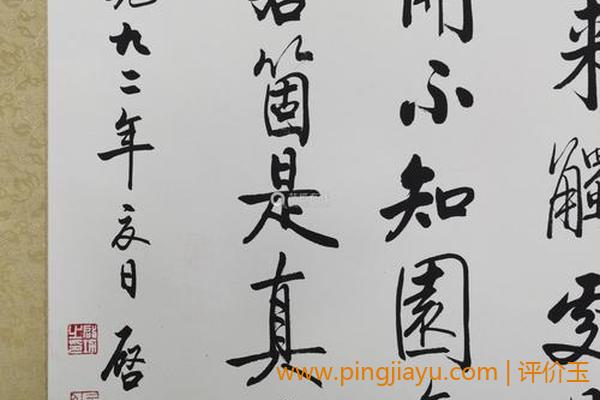 來觸處
開不知園
若箇是真
九二年夏日 啓
www.pingjiayu.com | 评价玉